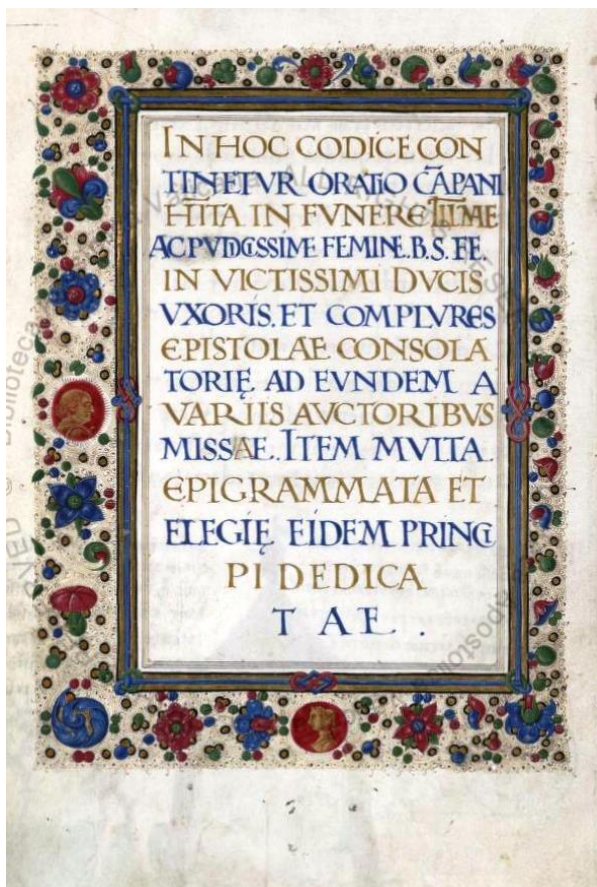 IN HOC CODICE CON
TINETVR ORATIO CĀPANI
HĪTA IN FVNERE ILLME
AC PVDICISSIME FEMINE. B. S. FE.
IN VICTISSIMI DVCIS
VXORIS. ET COMPLVRES
EPISTOLAE CONSOLA
TORIĘ AD EVNDEM A
VARIIS AVCTORIBVS
MISSAE. ITEM MVLTA
EPIGRAMMATA ET
ELEGIĘ EIDEM PRINCI
PI DEDICA
TAE.